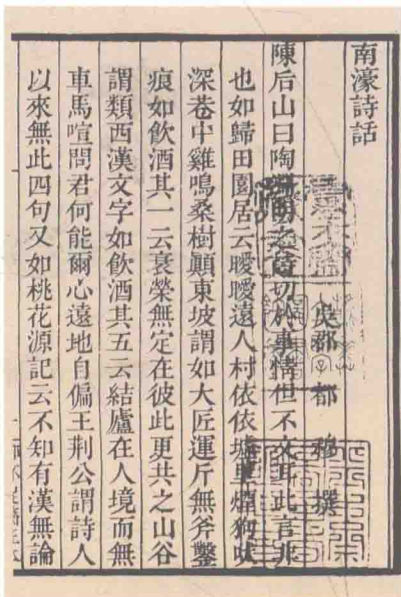 南濠詩話
吳郡 都 穆 撰
陳后山曰陶淵明之詩切於事情但不文耳此言非
也如歸田園居云曖曖遠人村依依墟里煙狗吠
深巷中雞鳴桑樹顛東坡謂如大匠運斤無斧鑿
痕如飲酒其一云衰榮無定在彼此更共之山谷
謂類西漢文字如飲酒其五云結廬在人境而無
車馬喧問君何能爾心遠地自偏王荊公謂詩人
以來無此四句又如桃花源記云不知有漢無論